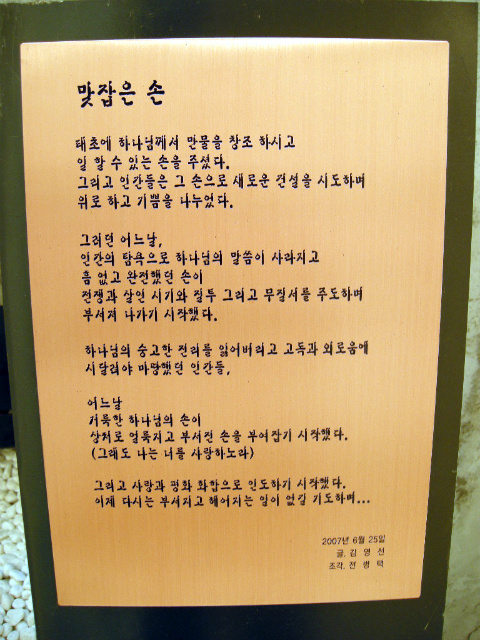 맞잡은 손
태초에 하나님께서 만물을 창조 하시고
일 할 수 있는 손을 주셨다.
그리고 인간들은 그 손으로 새로운 건설을 시도하며
위로 하고 기쁨을 나누었다.
그러던 어느날,
인간의 탐욕으로 하나님의 말씀이 사라지고
흠 없고 완전했던 손이
전쟁과 살인 시기와 질투 그리고 무질서를 주도하며
부서져 나가기 시작했다.
하나님의 숭고한 진리를 잃어버리고 고독과 외로움에
시달려야 마땅했던 인간들,
어느날
거룩한 하나님의 손이
상처로 얼룩지고 부서진 손을 부여잡기 시작했다.
(그래도 나는 너를 사랑하노라)
그리고 사랑과 평화 화합으로 인도하기 시작했다.
이제 다시는 부서지고 헤어지는 일이 없길 기도하며...
2007년 6월 25일
글. 김 영 선
조각. 전 병 택